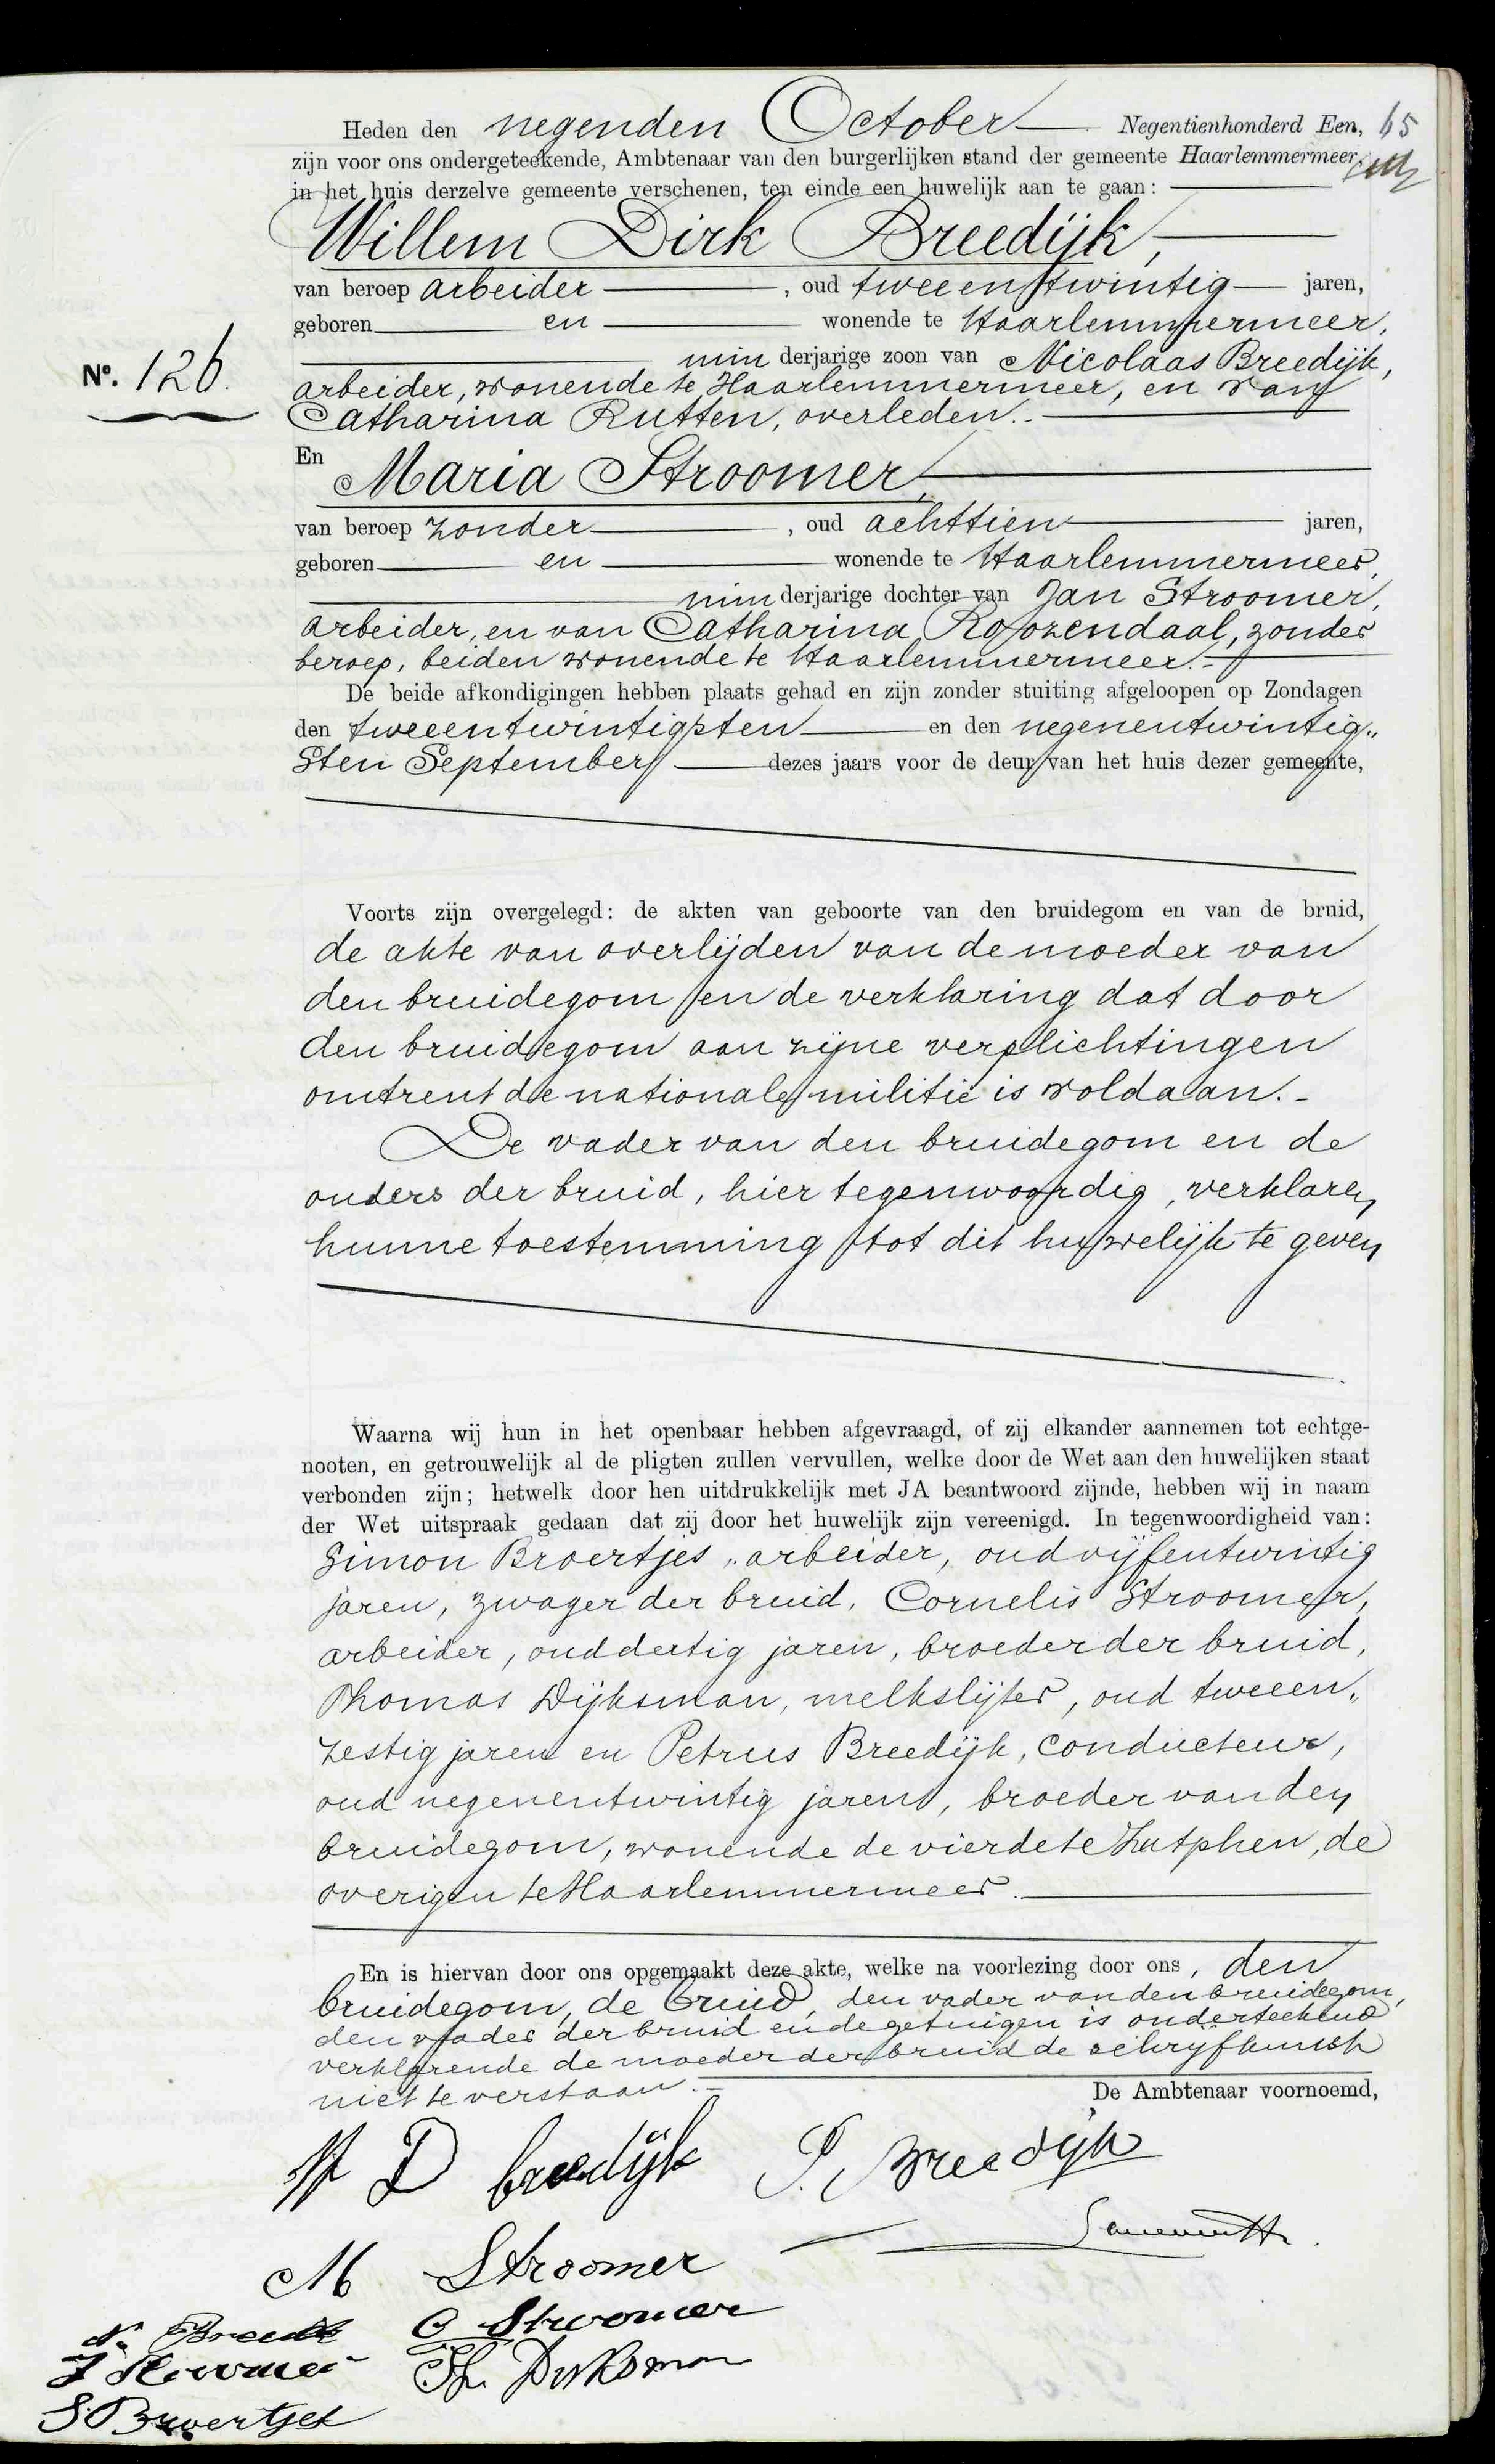 Heden den negenden October Negentienhonderd Een, 65
zijn voor ons ondergeteekende, Ambtenaar van den burgerlijken stand der gemeente Haarlemmermeer,
in het huis derzelve gemeente verschenen, ten einde een huwelijk aan te gaan:
Willem Dirk Breedijk,
van beroep arbeider, oud tweeentwintig jaren,
geboren en wonende te Haarlemmermeer,
No. 126.
minderjarige zoon van Nicolaas Breedijk,
arbeider, wonende te Haarlemmermeer, en van
Catharina Rutten, overleden.-
En Maria Stroomer,
van beroep zonder, oud achttien jaren,
geboren en wonende te Haarlemmermeer,
minderjarige dochter van Jan Stroomer,
arbeider, en van Catharina Roozendaal, zonder
beroep, beiden wonende te Haarlemmermeer.-
De beide afkondigingen hebben plaats gehad en zijn zonder stuiting afgeloopen op Zondagen
den tweeentwintigsten en den negenentwintig"
sten September dezes jaars voor de deur van het huis dezer gemeente,
Voorts zijn overgelegd: de akten van geboorte van den bruidegom en van de bruid,
de akte van overlijden van de moeder van
den bruidegom en de verklaring dat door
den bruidegom aan zijne verplichtingen
omtrent de nationale militie is voldaan.-
De vader van den bruidegom en de
ouders der bruid, hier tegenwoordig, verklaren
hunne toestemming tot dit huwelijk te geven
Waarna wij hun in het openbaar hebben afgevraagd, of zij elkander aannemen tot echtge-
nooten, en getrouwelijk al de pligten zullen vervullen, welke door de Wet aan den huwelijken staat
verbonden zijn; hetwelk door hen uitdrukkelijk met JA beantwoord zijnde, hebben wij in naam
der Wet uitspraak gedaan dat zij door het huwelijk zijn vereenigd. In tegenwoordigheid van:
Simon Broertjes, arbeider, oud vijfentwintig
jaren, zwager der bruid, Cornelis Stroomer,
arbeider, oud dertig jaren, broeder der bruid,
Thomas Dijksman, melkslijter, oud tweeen"
zestig jaren en Petrus Breedijk, conducteur,
oud negenentwintig jaren, broeder van den
bruidegom, wonende de vierde te Zutphen, de
overigen te Haarlemmermeer.
En is hiervan door ons opgemaakt deze akte, welke na voorlezing door ons, den
bruidegom, de bruid, den vader van den bruidegom,
den vader der bruid en de getuigen is onderteekend
verklarende de moeder der bruid de schrijfkunst
niet te verstaan.-
De Ambtenaar voornoemd,
W D Breedijk P. Breedijk
M Stroomer
N. Breedijk C Stroomer
J Stroomer Th. Dijksman
S. Broertjes